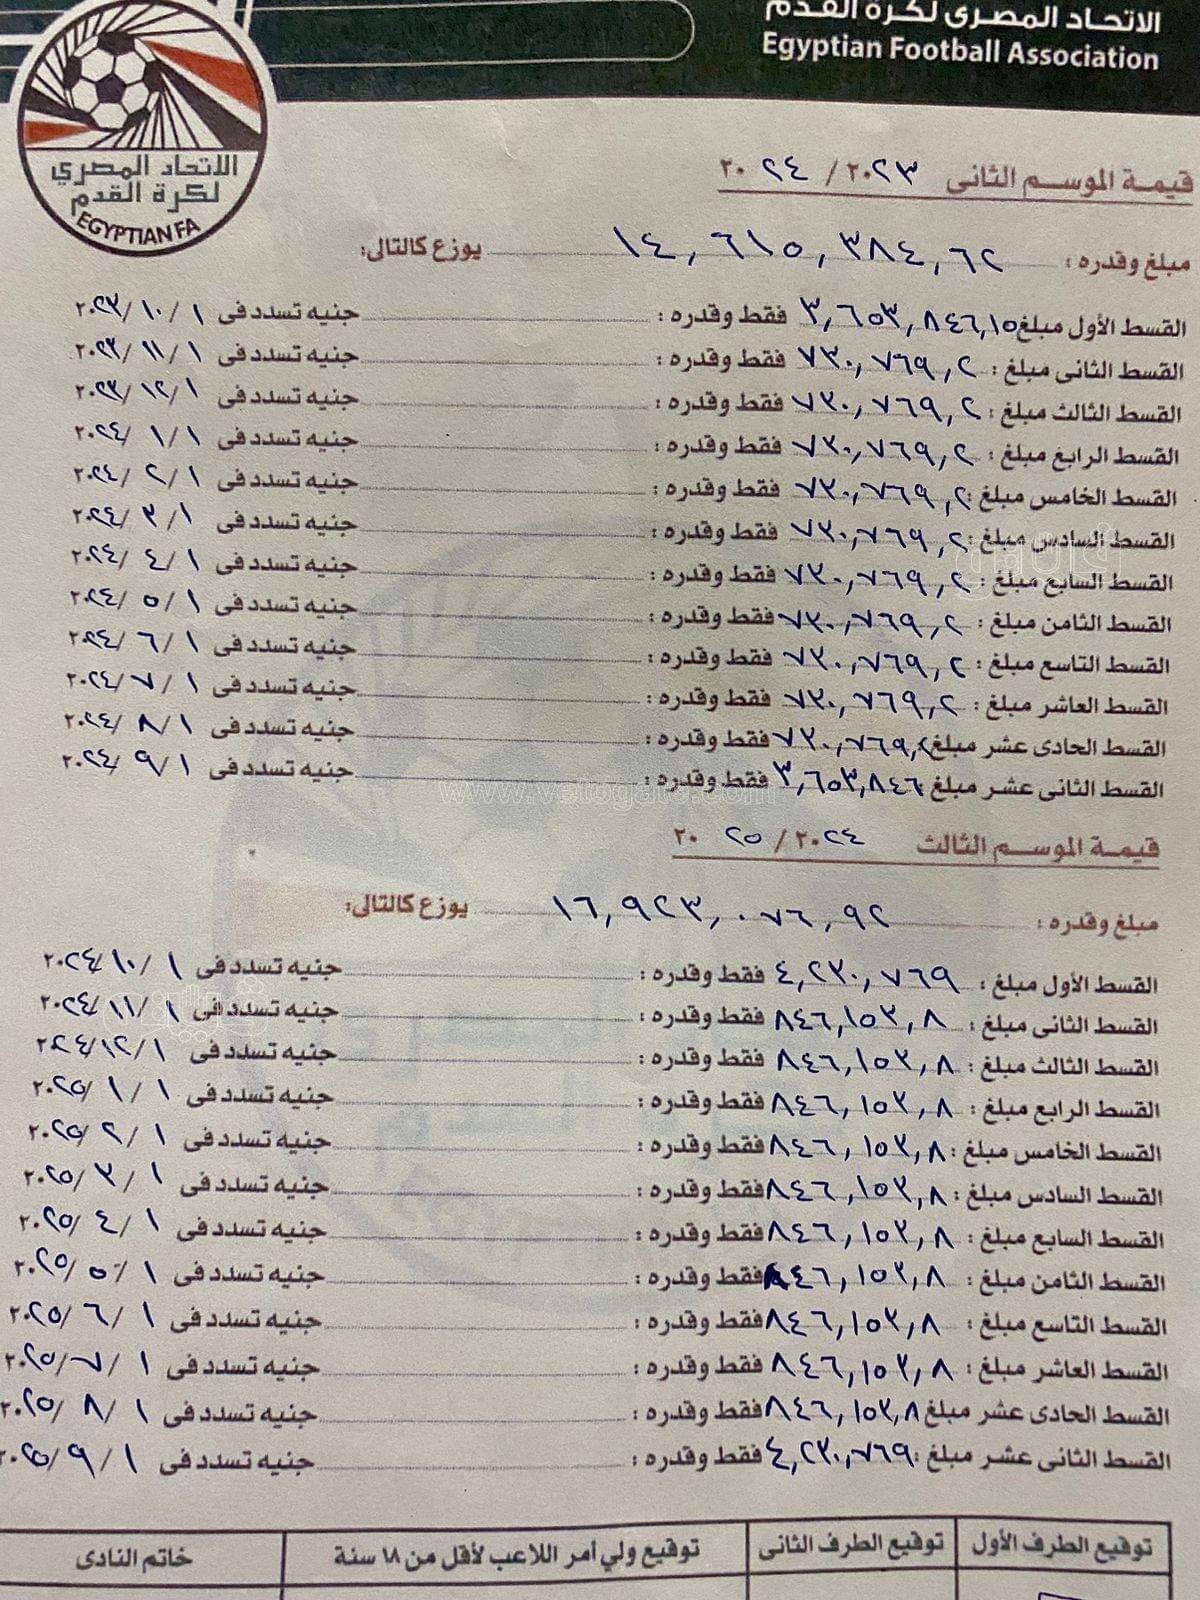 الاتحاد المصرى لكرة القدم
Egyptian Football Association
الاتحاد المصري
لكرة القدم
EGYPTIAN FA
قيمة الموسم الثانى ٢٠٢٣ / ٢٠٢٤
مبلغ وقدره : ١٤,٦١٥,٣٨٤,٦٢ يوزع كالتالى:
القسط الأول مبلغ ٣,٦٥٣,٨٤٦,١٥ فقط وقدره : جنيه تسدد فى ١ / ١٠ / ٢٠٢٣
القسط الثانى مبلغ : ٧٣٠,٧٦٩,٢ فقط وقدره : جنيه تسدد فى ١ / ١١ / ٢٠٢٣
القسط الثالث مبلغ : ٧٣٠,٧٦٩,٢ فقط وقدره : جنيه تسدد فى ١ / ١٢ / ٢٠٢٣
القسط الرابع مبلغ : ٧٣٠,٧٦٩,٢ فقط وقدره : جنيه تسدد فى ١ / ١ / ٢٠٢٤
القسط الخامس مبلغ : ٧٣٠,٧٦٩,٢ فقط وقدره : جنيه تسدد فى ١ / ٢ / ٢٠٢٤
القسط السادس مبلغ : ٧٣٠,٧٦٩,٢ فقط وقدره : جنيه تسدد فى ١ / ٣ / ٢٠٢٤
القسط السابع مبلغ : ٧٣٠,٧٦٩,٢ فقط وقدره : جنيه تسدد فى ١ / ٤ / ٢٠٢٤
القسط الثامن مبلغ : ٧٣٠,٧٦٩,٢ فقط وقدره : جنيه تسدد فى ١ / ٥ / ٢٠٢٤
القسط التاسع مبلغ : ٧٣٠,٧٦٩,٢ فقط وقدره : جنيه تسدد فى ١ / ٦ / ٢٠٢٤
القسط العاشر مبلغ : ٧٣٠,٧٦٩,٢ فقط وقدره : جنيه تسدد فى ١ / ٧ / ٢٠٢٤
القسط الحادى عشر مبلغ ٧٣٠,٧٦٩,٢ فقط وقدره : جنيه تسدد فى ١ / ٨ / ٢٠٢٤
القسط الثانى عشر مبلغ : ٣,٦٥٣,٨٤٦ فقط وقدره : جنيه تسدد فى ١ / ٩ / ٢٠٢٤
www.vetogate.com
قيمة الموسم الثالث ٢٠٢٤ / ٢٠٢٥
مبلغ وقدره : ١٦,٩٢٣,٠٧٦,٩٢ يوزع كالتالى:
القسط الأول مبلغ : ٤,٢٣٠,٧٦٩ فقط وقدره : جنيه تسدد فى ١ / ١٠ / ٢٠٢٤
القسط الثانى مبلغ : ٨٤٦,١٥٣,٨ فقط وقدره : جنيه تسدد فى ١ / ١١ / ٢٠٢٤
القسط الثالث مبلغ : ٨٤٦,١٥٣,٨ فقط وقدره : جنيه تسدد فى ١ / ١٢ / ٢٠٢٤
القسط الرابع مبلغ : ٨٤٦,١٥٣,٨ فقط وقدره : جنيه تسدد فى ١ / ١ / ٢٠٢٥
القسط الخامس مبلغ : ٨٤٦,١٥٣,٨ فقط وقدره : جنيه تسدد فى ١ / ٢ / ٢٠٢٥
القسط السادس مبلغ : ٨٤٦,١٥٣,٨ فقط وقدره : جنيه تسدد فى ١ / ٣ / ٢٠٢٥
القسط السابع مبلغ : ٨٤٦,١٥٣,٨ فقط وقدره : جنيه تسدد فى ١ / ٤ / ٢٠٢٥
القسط الثامن مبلغ : ٨٤٦,١٥٣,٨ فقط وقدره : جنيه تسدد فى ١ / ٥ / ٢٠٢٥
القسط التاسع مبلغ : ٨٤٦,١٥٣,٨ فقط وقدره : جنيه تسدد فى ١ / ٦ / ٢٠٢٥
القسط العاشر مبلغ : ٨٤٦,١٥٣,٨ فقط وقدره : جنيه تسدد فى ١ / ٧ / ٢٠٢٥
القسط الحادى عشر مبلغ ٨٤٦,١٥٣,٨ فقط وقدره : جنيه تسدد فى ١ / ٨ / ٢٠٢٥
القسط الثانى عشر مبلغ : ٤,٢٣٠,٧٦٩ فقط وقدره : جنيه تسدد فى ١ / ٩ / ٢٠٢٥
توقيع الطرف الأول توقيع الطرف الثانى توقيع ولي أمر اللاعب لأقل من ١٨ سنة خاتم النادى